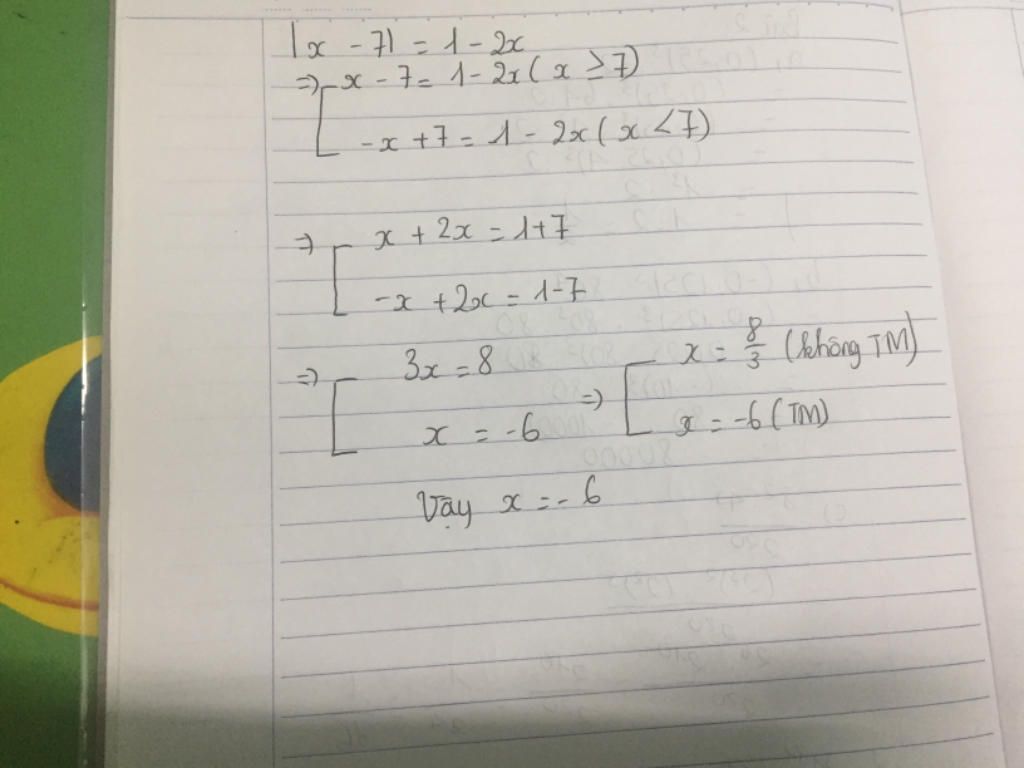 |x - 7| = 1 - 2x
⇒ [ x - 7 = 1 - 2x ( x ≥ 7)
-x + 7 = 1 - 2x ( x < 7)
⇒ [ x + 2x = 1+7
-x + 2x = 1-7
⇒ [ 3x = 8 ⇒ [ x = 8/3 (không TM)
x = -6 x = -6 (TM)
Vậy x = -6